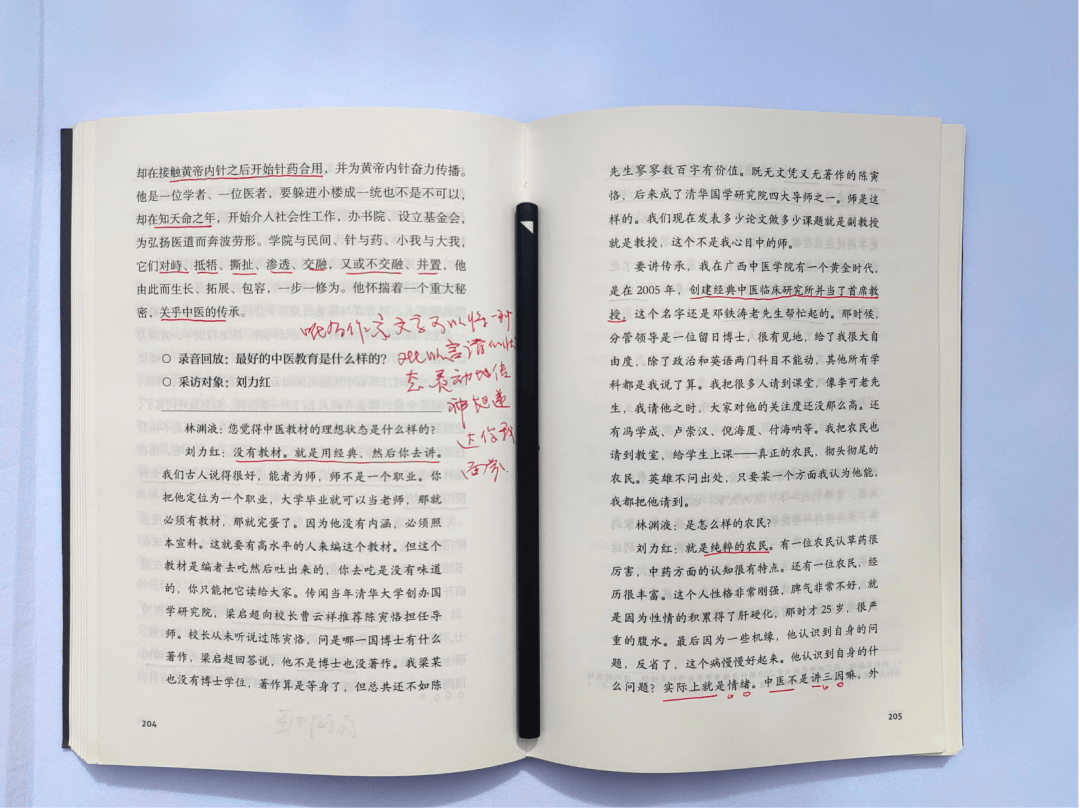 却在接触黄帝内针之后开始针药合用，并为黄帝内针奋力传播。
他是一位学者、一位医者，要躲进小楼成一统也不是不可以，
却在知天命之年，开始介入社会性工作，办书院、设立基金会，
为弘扬医道而奔波劳形。学院与民间、针与药、小我与大我，
它们对峙、抵牾、撕扯、渗透、交融，又或不交融、并置，他
由此而生长、拓展、包容，一步一修为。他怀揣着一个重大秘
密，关乎中医的传承。
○ 录音回放：最好的中医教育是什么样的？
○ 采访对象：刘力红
林渊液：您觉得中医教材的理想状态是什么样的？
刘力红：没有教材。就是用经典，然后你去讲。
我们古人说得很好，能者为师，师不是一个职业。你
把他定位为一个职业，大学毕业就可以当老师，那就
必须有教材，那就完蛋了。因为他没有内涵，必须照
本宣科。这就要有高水平的人来编这个教材。但这个
教材是编者去吃然后吐出来的，你去吃是没有味道
的，你只能把它读给大家。传闻当年清华大学创办国
学研究院，梁启超向校长曹云祥推荐陈寅恪担任导
师。校长从未听说过陈寅恪，问是哪一国博士有什么
著作，梁启超回答说，他不是博士也没著作。我梁某
也没有博士学位，著作算是等身了，但总共还不如陈
204
作家文字可以将一种
难以言谓的状
态灵动地传
神地递
达你我
面前
民间中医
先生寥寥数百字有价值。既无文凭又无著作的陈寅
恪，后来成了清华国学研究院四大导师之一。师是这
样的。我们现在发表多少论文做多少课题就是副教授
就是教授，这个不是我心目中的师。
要讲传承，我在广西中医学院有一个黄金时代，
是在 2005 年，创建经典中医临床研究所并当了首席教
授，这个名字还是邓铁涛老先生帮忙起的。那时候，
分管领导是一位留日博士，很有见地，给了我很大自
由度，除了政治和英语两门科目不能动，其他所有学
科都是我说了算。我把很多人请到课堂，像李可老先
生，我请他之时，大家对他的关注度还没那么高。还
有冯学成、卢崇汉、倪海厦、付海呐等。我把农民也
请到教室，给学生上课——真正的农民，彻头彻尾的
农民。英雄不问出处，只要某一个方面我认为他能，
我都把他请到。
林渊液：是怎么样的农民？
刘力红：就是纯粹的农民。有一位农民认草药很
厉害，中药方面的认知很有特点。还有一位农民，经
历很丰富。这个人性格非常刚强，脾气非常不好，就
是因为性情的积累得了肝硬化，那时才 25 岁，很严
重的腹水。最后因为一些机缘，他认识到自身的问
题，反省了，这个病慢慢好起来。他认识到自身的什
么问题？实际上就是情绪。中医不是讲三因嘛，外
205